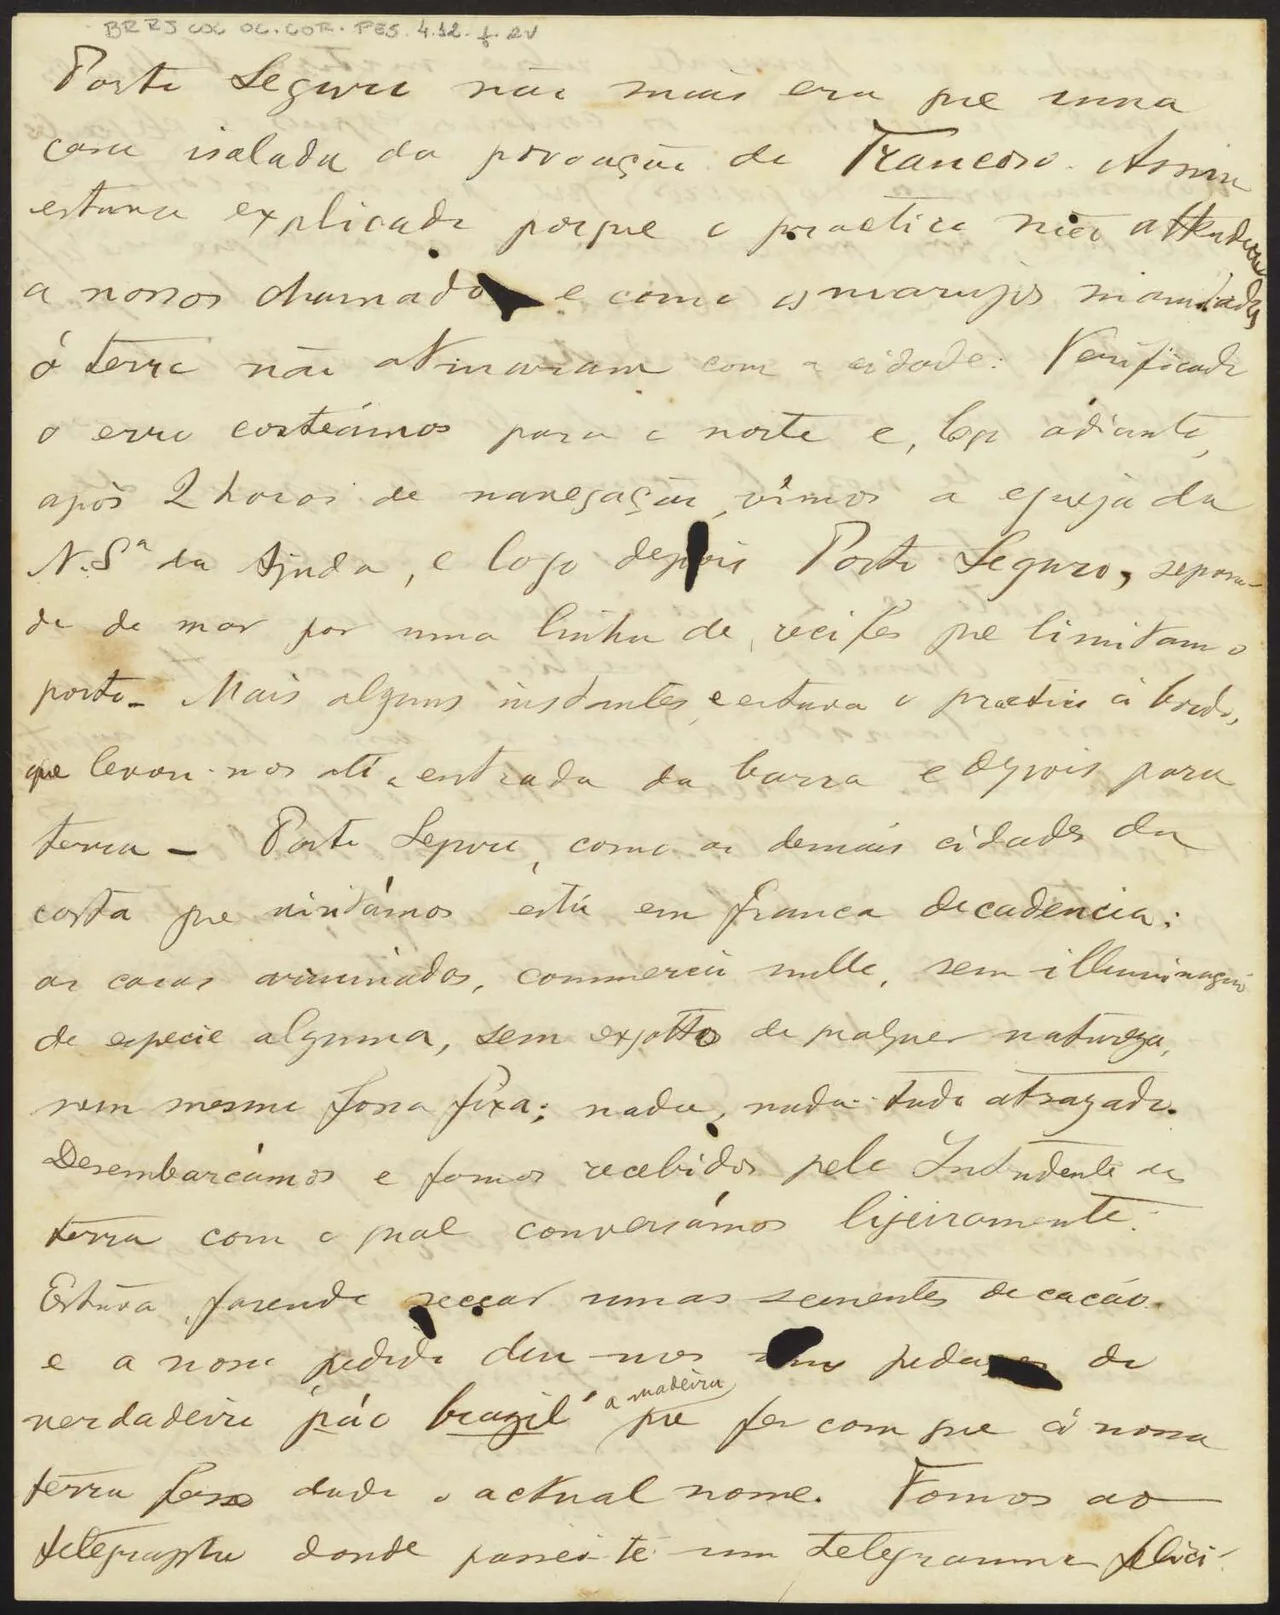 BR RJ COC OC. COR. PES. 4.12. f. 2v
Porto Seguro não mais era que uma
casa isolada da povoação de Trancoso. Assim
estava explicado porque o practico não attendera
a nossos chamados e como os marujos mandados
á terra não atinaram com a cidade. Verificado
o erro costeámos para o norte e, logo adiante,
após 2 horas de navegação, vimos a egreja da
N. Sª da Ajuda, e logo depois Porto Seguro, separa-
do do mar por uma linha de recifes que limitam o
porto. Mais alguns instantes, e estava o practico á bordo,
que levou-nos até a entrada da barra e depois para
terra – Porto Seguro, como as demais cidades da
costa que visitámos está em franca decadencia:
as casas arruinadas, commercio nullo, sem illuminação
de especie alguma, sem exgotto de qualquer natureza,
nem mesmo fossa fixa; nada, nada: tudo atrazado.
Desembarcámos e fomos recebidos pelo Intendente da
terra com o qual conversámos lijeiramente.
Estava fazendo seccar umas sementes de cacáo.
e a nosso pedido deu-nos um pedaço de
verdadeiro "páo brazil" a madeira que fez com que á nossa
terra fosse dado o actual nome. Fomos ao
telegrapho donde passei-te um telegramma felici-